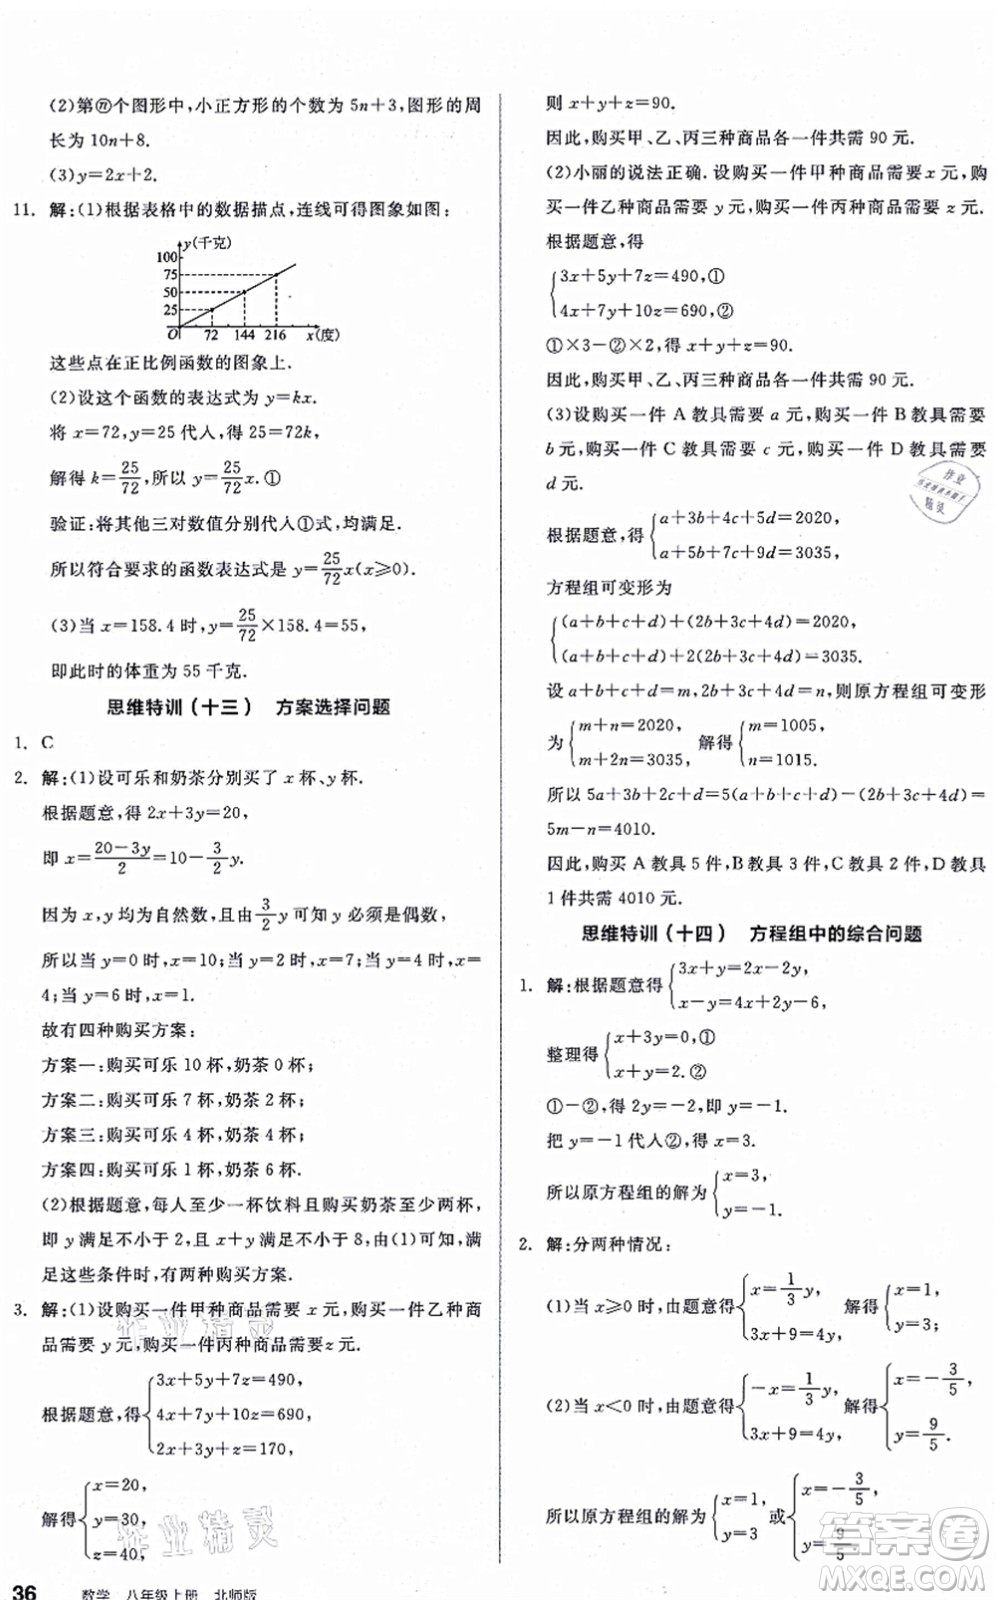 (2)第ⓝ个图形中,小正方形的个数为5n+3,图形的周
长为10n+8.
(3)y=2x+2.
11. 解:(1)根据表格中的数据描点,连线可得图象如图:
y(千克)
100
75
50
25
O 72 144 216 x(度)
这些点在正比例函数的图象上.
(2)设这个函数的表达式为y=kx.
将x=72,y=25代人,得25=72k,
解得k=25/72,所以y=25/72x.①
验证:将其他三对数值分别代人①式,均满足.
所以符合要求的函数表达式是y=25/72x(x⩾0).
(3)当x=158.4时,y=25/72×158.4=55,
即此时的体重为55千克.
思维特训(十三) 方案选择问题
1. C
2. 解:(1)设可乐和奶茶分别买了x杯、y杯.
根据题意,得2x+3y=20,
即x=(20-3y)/2=10-3/2y.
因为x,y均为自然数,且由3/2y可知y必须是偶数,
所以当y=0时,x=10;当y=2时,x=7;当y=4时,x=
4;当y=6时,x=1.
故有四种购买方案:
方案一:购买可乐10杯,奶茶0杯;
方案二:购买可乐7杯,奶茶2杯;
方案三:购买可乐4杯,奶茶4杯;
方案四:购买可乐1杯,奶茶6杯.
(2)根据题意,每人至少一杯饮料且购买奶茶至少2杯,
即y满足不小于2,且(x+y)不小于8,由(1)可知,满足
这些条件时,有两种购买方案.
3. 解:(1)设购买一件甲种商品需要x元,购买一件乙种商
品需要y元,购买一件丙种商品需要z元.
根据题意,得{3x+5y+7z=490,
4x+7y+10z=690,
2x+3y+z=170,
解得{x=20,
y=30,
z=40,
36 数学 八年级上册 北师版
则x+y+z=90.
因此,购买甲、乙、丙三种商品各一件共需90元.
(2)小丽的说法正确.设购买一件甲种商品需要x元,
购买一件乙种商品需要y元,购买一件丙种商品需要z元.
根据题意,得
{3x+5y+7z=490,①
4x+7y+10z=690,②
①×3-②×2,得x+y+z=90.
因此,购买甲、乙、丙三种商品各一件共需90元.
(3)设购买一件A教具需要a元,购买一件B教具需要
b元,购买一件C教具需要c元,购买一件D教具需要
d元.
根据题意,得{a+3b+4c+5d=2020,
a+5b+7c+9d=3035,
方程组可变形为
{(a+b+c+d)+(2b+3c+4d)=2020,
(a+b+c+d)+2(2b+3c+4d)=3035,
设a+b+c+d=m,2b+3c+4d=n,则原方程组可变形
为{m+n=2020,
m+2n=3035, 解得{m=1005,
n=1015.
所以5a+3b+2c+d=5(a+b+c+d)-(2b+3c+4d)=
5m-n=4010.
因此,购买A教具5件,B教具3件,C教具2件,D教具
1件共需4010元.
思维特训(十四) 方程组中的综合问题
1. 解:根据题意得{3x+y=2x-2y,
x-y=4x+2y-6,
整理得{x+3y=0,①
x+y=2.②
①-②,得2y=-2,即y=-1.
把y=-1代人②,得x=3.
所以原方程组的解为{x=3,
y=-1.
2. 解:分两种情况:
(1)当x⩾0时,由题意得{x=1/3y,
3x+9=4y, 解得{x=1,
y=3;
(2)当x<0时,由题意得{-x=1/3y,
3x+9=4y, 解得{x=-3/5,
y=9/5.
所以原方程组的解为{x=1,
y=3 或{x=-3/5,
y=9/5.
作业精灵
作业精灵
答案卷